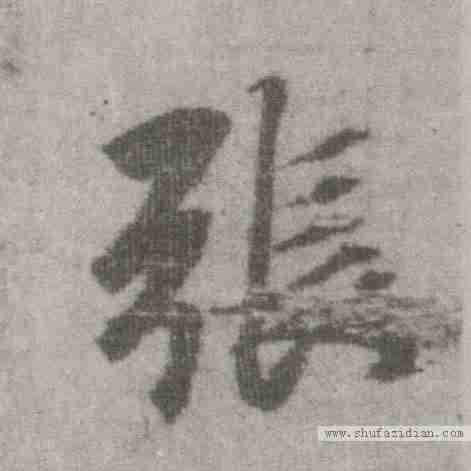 張
www.shufazidian.com